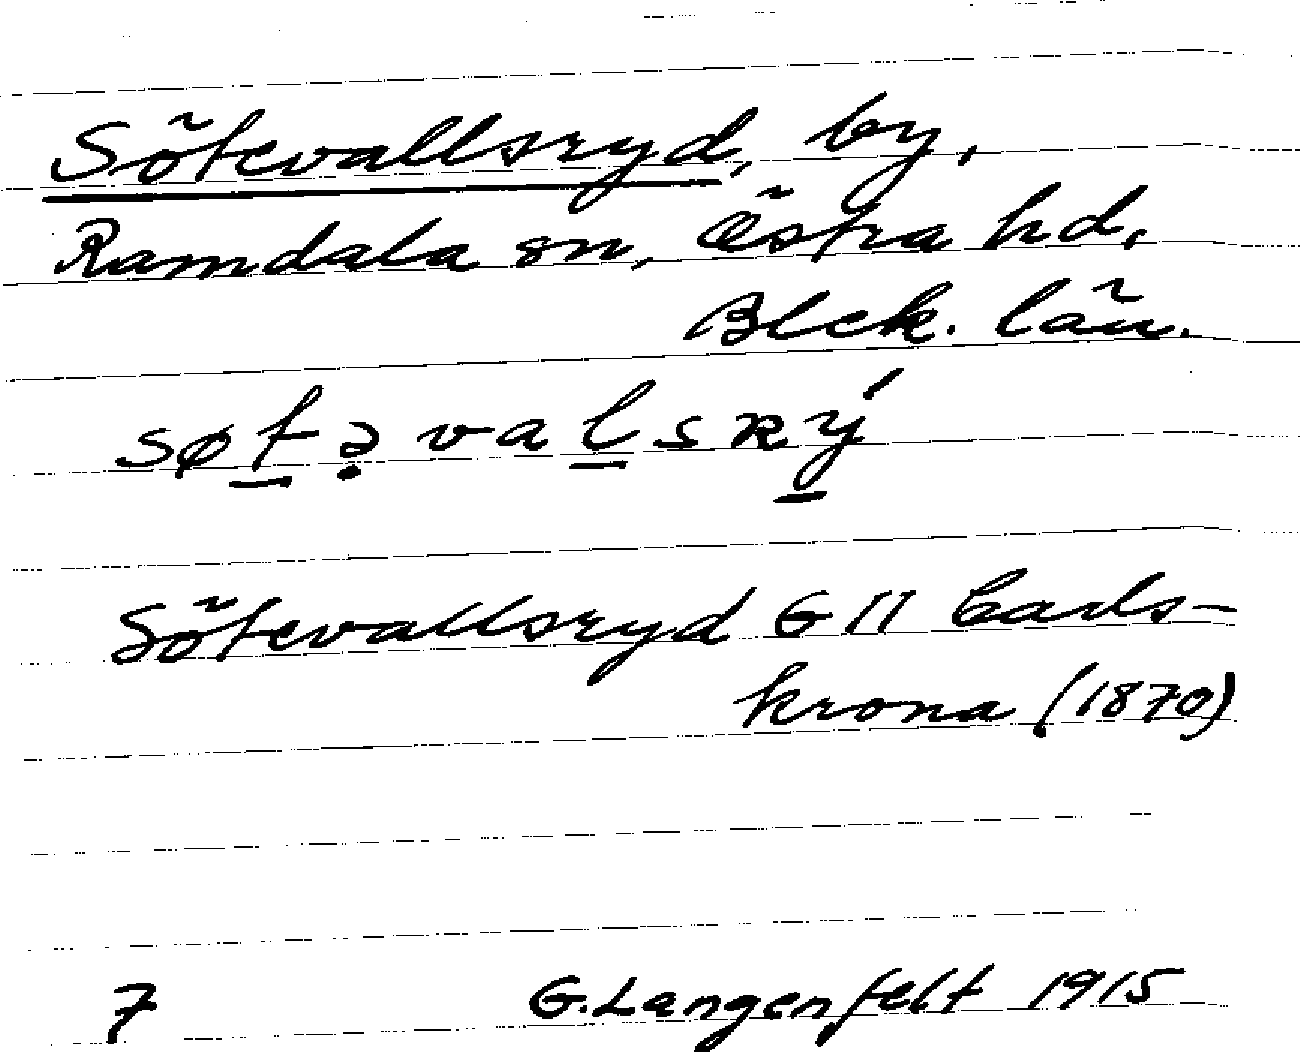 Sötevallsryd, by,
Ramdala sn, Östra hd,
Blek. län.
søt̠ə̣val̠sRý̠
Sötevallsryd G II Carls-
krona (1870)
7 G. Langenfelt 1915